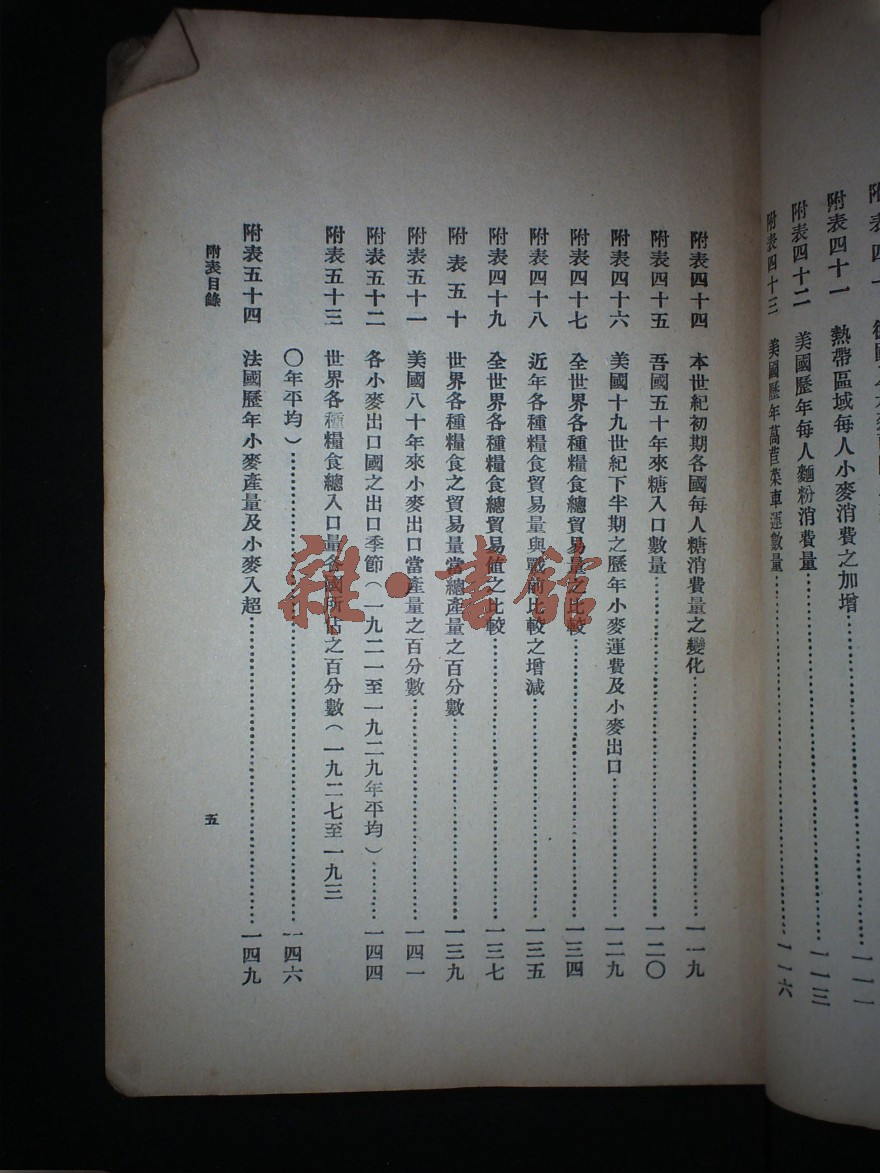 附表四十一　熱帶區域每人小麥消費之加增…………一一一
附表四十二　美國歷年每人麵粉消費量…………一一三
附表四十三　美國歷年萵苣菜車運數量…………一一六
附表四十四　本世紀初期各國每人糖消費量之變化…………一一九
附表四十五　吾國五十年來糖入口數量…………一二〇
附表四十六　美國十九世紀下半期之歷年小麥運費及小麥出口…………一二九
附表四十七　全世界各種糧食總貿易量之比較…………一三四
附表四十八　近年各種糧食貿易量與戰前比較之增減…………一三五
附表四十九　全世界各種糧食總貿易值之比較…………一三七
附表五十　世界各種糧食之貿易量當總產量之百分數…………一三九
附表五十一　美國八十年來小麥出口當產量之百分數…………一四一
附表五十二　各小麥出口國之出口季節（一九二一至一九二九年平均）…………一四四
附表五十三　世界各種糧食總入口量各國所佔之百分數（一九二七至一九三
〇年平均）…………一四六
附表五十四　法國歷年小麥產量及小麥入超…………一四九
附表目錄
五
雜·書館